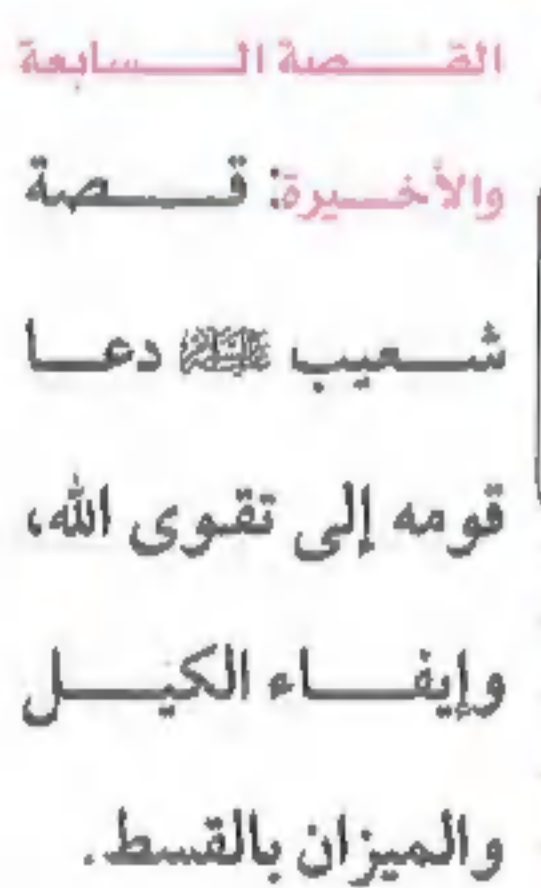 القصة السابعة
والأخيرة: قصة
شعيب ﷺ دعا
قومه إلى تقوى الله،
وإيفاء الكيل
والميزان بالقسط.